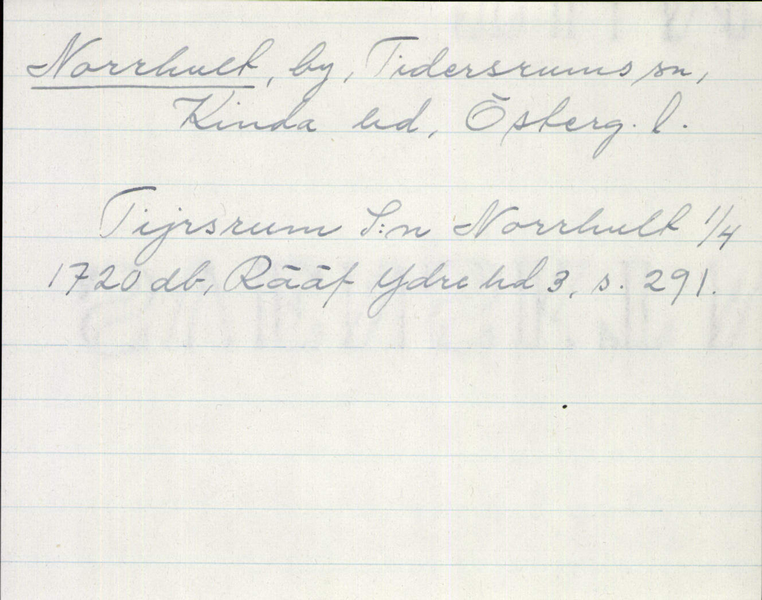 Norrhult, by, Tidersrums sn,
Kinda hd, Österg. l.
Tijrsrum S:n Norrhult 1/4
1720 db, Rääf Ydre hd 3, s. 291.